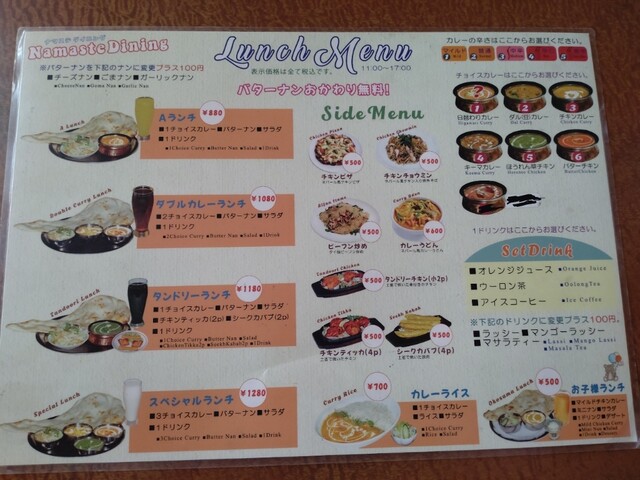 ナマステ ダイニング
Namaste Dining
※バターナンを下記のナンに変更プラス100円
■チーズナン■ごまナン■ガーリックナン
■CheeseNan ■Goma Nan ■Garlic Nan
Lunch Menu
表示価格は全て税込です。 11:00~17:00
バターナンおかわり無料!
A Lunch
Aランチ ¥880
■1チョイスカレー■バターナン■サラダ
■1ドリンク
■1Choice Curry ■Butter Nan ■Salad ■1Drink
Double Curry Lunch
ダブルカレーランチ ¥1080
■2チョイスカレー■バターナン■サラダ
■1ドリンク
■2Choice Curry ■Butter Nan ■Salad ■1Drink
Tandoori Lunch
タンドリーランチ ¥1180
■1チョイスカレー■バターナン■サラダ
■チキンティッカ(2p)■シークカバブ(2p)
■1ドリンク
■1Choice Curry ■Butter Nan ■Salad
■ChickenTikka2p ■SeekhKabab2p ■1Drink
Special Lunch
スペシャルランチ ¥1280
■3チョイスカレー■バターナン■サラダ
■1ドリンク
■3Choice Curry ■Butter Nan ■Salad ■1Drink
Side Menu
Chicken Pizza
¥500
チキンピザ
Chicken Chowmin
¥500
チキンチョウミン
¥500
ビーフン炒め
Curry Udon
¥600
カレーうどん
Tandoori Chicken
¥500
タンドリーチキン(小2p)
Chicken Tikka
¥500
チキンティッカ(4p)
Seekh Kabab
¥500
シークカバブ(4p)
Curry Rice
¥700
カレーライス
■1チョイスカレー
■ライス■サラダ
■1Choice Curry
■Rice ■Salad
カレーの辛さはここからお選びください。
1 2 3 4 5
チョイスカレーはここからお選びください。
? 2 3
日替わりカレー
Higawari Curry
ダル(豆)カレー
Dal Curry
チキンカレー
Chicken Curry
4 5 6
キーマカレー
Keema Curry
ほうれん草チキン
バターチキン
1ドリンクはここからお選びください。
Sot Drink
■オレンジジュース ■Orange Juice
■ウーロン茶 ■OulongTea
■アイスコーヒー ■Ice Coffee
※下記のドリンクに変更プラス100円。
■ラッシー■マンゴーラッシー
■マサラティー ■Lassi ■Mango Lassi
■Masala Tea
Okosama Lunch
¥500
お子様ランチ
■マイルドチキンカレー
■ミニナン■サラダ
■1ドリンク■デザート
■Mild Chicken Curry
■Mini Nan ■Salad
■1Drink ■Dessert